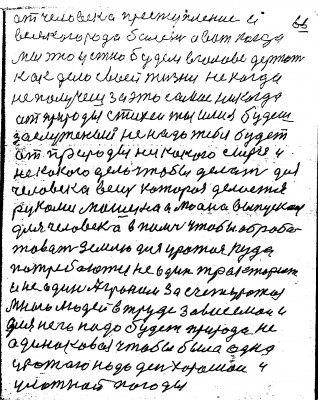 от человека преступление и 66
всякого рода болезни а вот когда
мы это устно будем в голове держать
как дело своей жизни некогда
не получем за это самое никогда
от природы стихеи ты ими будеш
заслуженый не надо тебе будет
от природы никакого сырья и
некакого дела чтобы делать для
человека вещ которая делается
руками машина а моана выпускает
для человека в помич чтобы обрабо-
товать землю для урожая куда
потребоются не один тракторист
и не один Агроном За счет урожая
много людей в труде зависемои и
для него надо будет природа не
одинаковая чтобы была одна
урожаю надо ден хорошои и
уютной погоды